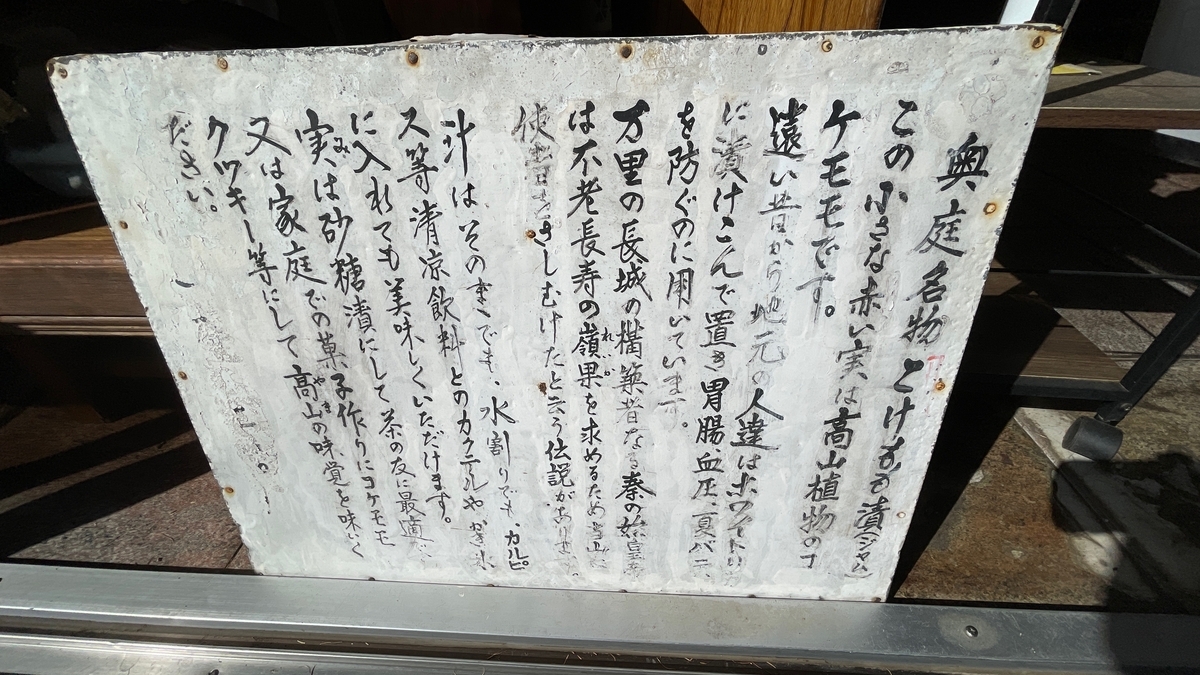 奥庭名物 こけもも漬(ジャム)
この小さな赤い実は高山植物のコ
ケモモです。
遠い昔から地元の人達はホワイト
に漬けこんで置き胃腸、血圧、夏バテ、
を防ぐのに用いています。
万里の長城の構築昔なる秦の始皇帝
は不老長寿の嶺果を求めるため当山に
れいか
使者をさしむけたと云う伝説があります。
汁はそのままでも、水割りでも、カルピ
ス等清凉飲料とのカクテルやかき氷
に入れても美味しくいただけます。
実は砂糖漬にして茶の友に最適
み
又は家庭での菓子作りにコケモモ
クッキー等にして高山の味覚を味いく
やき
ださい。